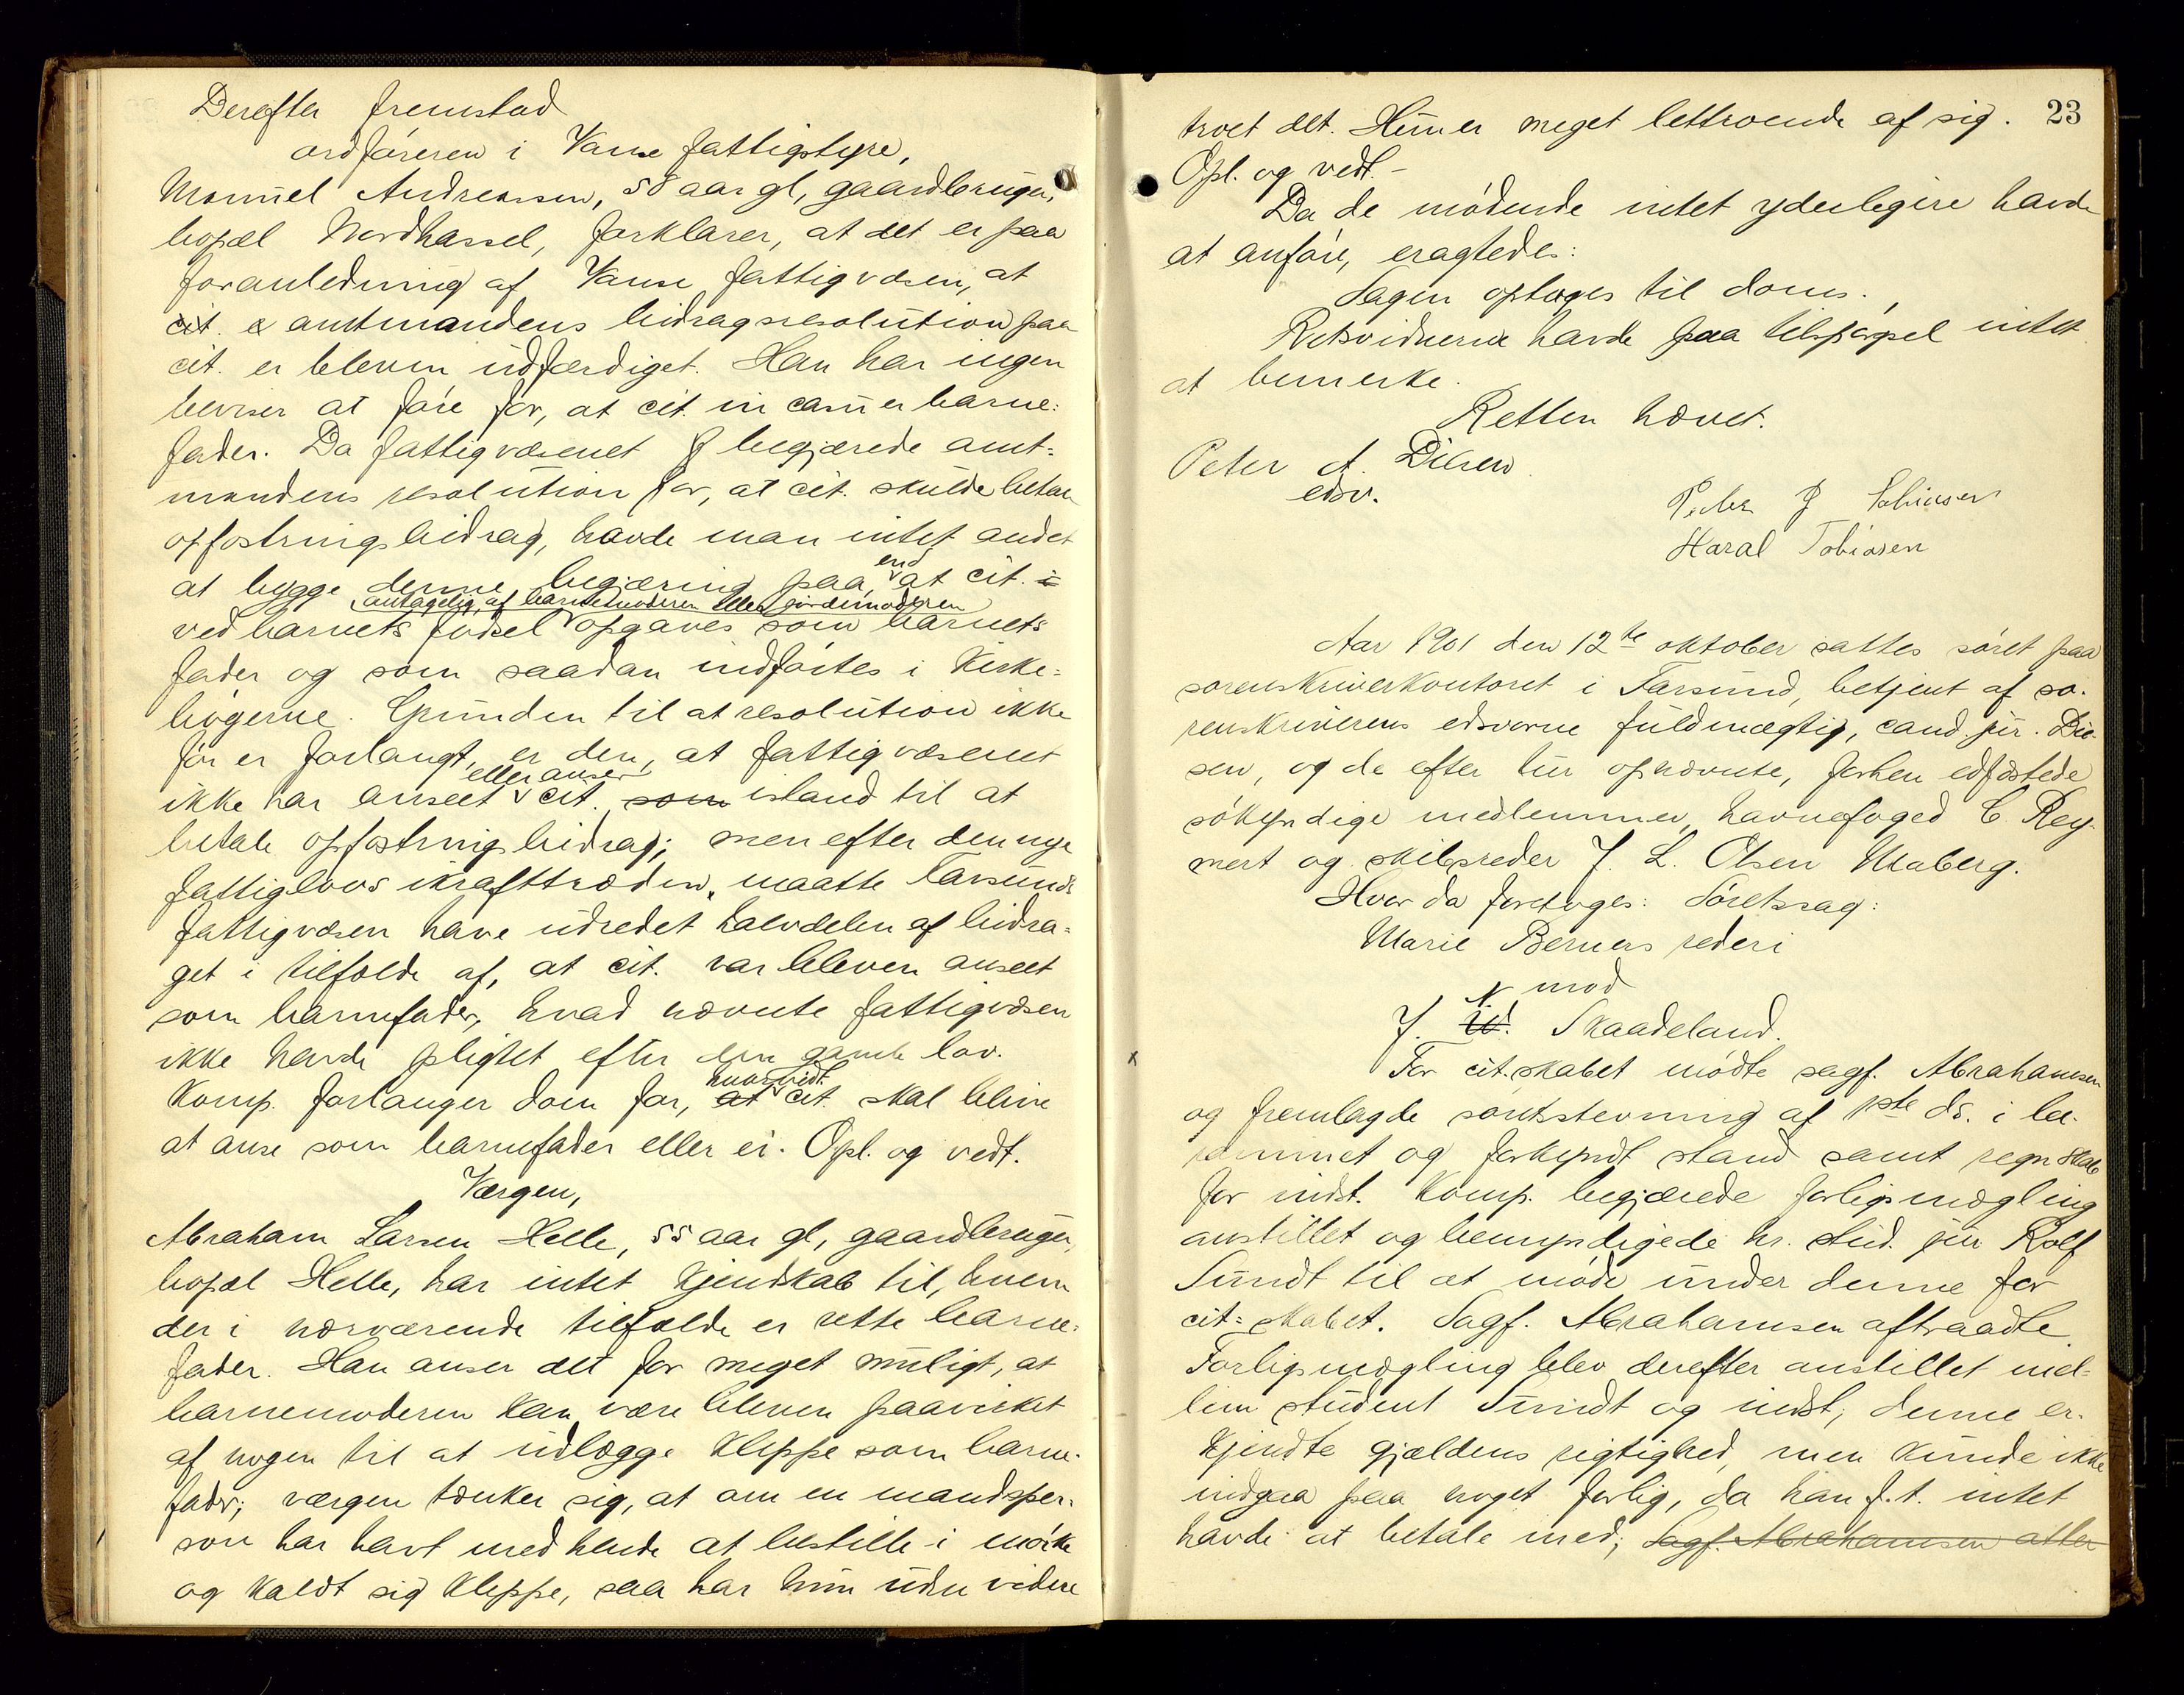 Derefter fremstod
ordføreren i Vanse fattigstyre,
Manuel Andreassen, 58 aar gl, gaardbruger,
bopæl Nordhassel, forklarer, at det er paa
foranledning af Vanse fattigvæsen, at
cit. e amtmandens bidragsresolution paa
cit. er bleven udfærdiget. Han har ingen
beviser at føre for, at cit. in casu er barne-
fader. Da fattigvæsenet begjærede amt-
mandens resolution for, at cit. skulde betale
opfostringsbidrag, havde man intet andet
at bygge denne begjæring paa, end at cit. i
antagelig af barnemoderen eller jordemoderen
ved barnets fødsel opgaves som barnets
fader og som saadan indførtes i kirke-
bøgerne. Grunden til at resolution ikke
før er forlangt, er den, at fattigvæsenet
eller anser
ikke har anseet cit. som istand til at
betale opfostringsbidrag; men efter den nye
fattiglovs ikrafttræden, maatte Farsunds
fattigvæsen have udredet halvdelen af bidra-
get i tilfælde af, at cit. var bleven anseet
som barnefader, hvad nævnte fattigvæsen
ikke havde pligtet efter den gamle lov.
hvorvidt
Komp. forlanger dom for, at cit. skal blive
at anse som barnefader eller ei. Opl. og vedt.
Værgen,
Abraham Larsen Helle, 55 aar gl, gaardbruger,
bopæl Helle, har intet kjendskab til, hvem
der i nærværende tilfælde er rette barne-
fader. Han anser det for meget muligt, at
barnemoderen kan være bleven paavirket
af nogen til at udlægge Kleppe som barne-
fader; værgen tænker sig, at om en mandsper-
son har havt med hende at bestille i mørke
og kaldt sig Kleppe, saa har hun uden videre
23
troet det. Hun er meget lettroende af sig.
Opl. og vedt.-
Da de mødende intet yderligere havde
at anføre, eragtedes:
Sagen optages til doms.
Retsvidnerne havde paa tilspørgsel intet
at bemerke.
Retten hævet.
Peter A. Diesen
edsv.
Peder J
Haral Tobiasen
Aar 1901 den 12te oktober sattes søret paa
sorenskriverkontoret i Farsund, betjent af so-
renskriverens edsvorne fuldmægtig, cand. jur. Die-
sen, og de efter tur opnævnte, forhen edfæstede
søkyndige medlemmer, havnefoged C. Rey-
mert og skibsreder J. L. Olsen Maberg.
Hvor da foretoges: Søretssag:
Marie Berners rederi
mod
J. W. N. Skaadeland.
For cit.skabet mødte sagf. Abrahamsen
og fremlagde søretsstevning af 1ste ds. i be-
rammet og forkyndt stand samt regnskab
for indst. Komp. begjærede forligsmægling
anstillet og bemyndigede hr. stud. jur Rolf
Sundt til at møde under denne for
cit-skabet. Sagf. Abrahamsen aftraadte
Forligsmægling blev derefter anstillet mel-
lem student Sundt og indst; denne er-
kjendte gjældens rigtighed, men kunde ikke
indgaa paa noget forlig, da han f.t. intet
havde at betale med; Sagf. Abrahamsen atter